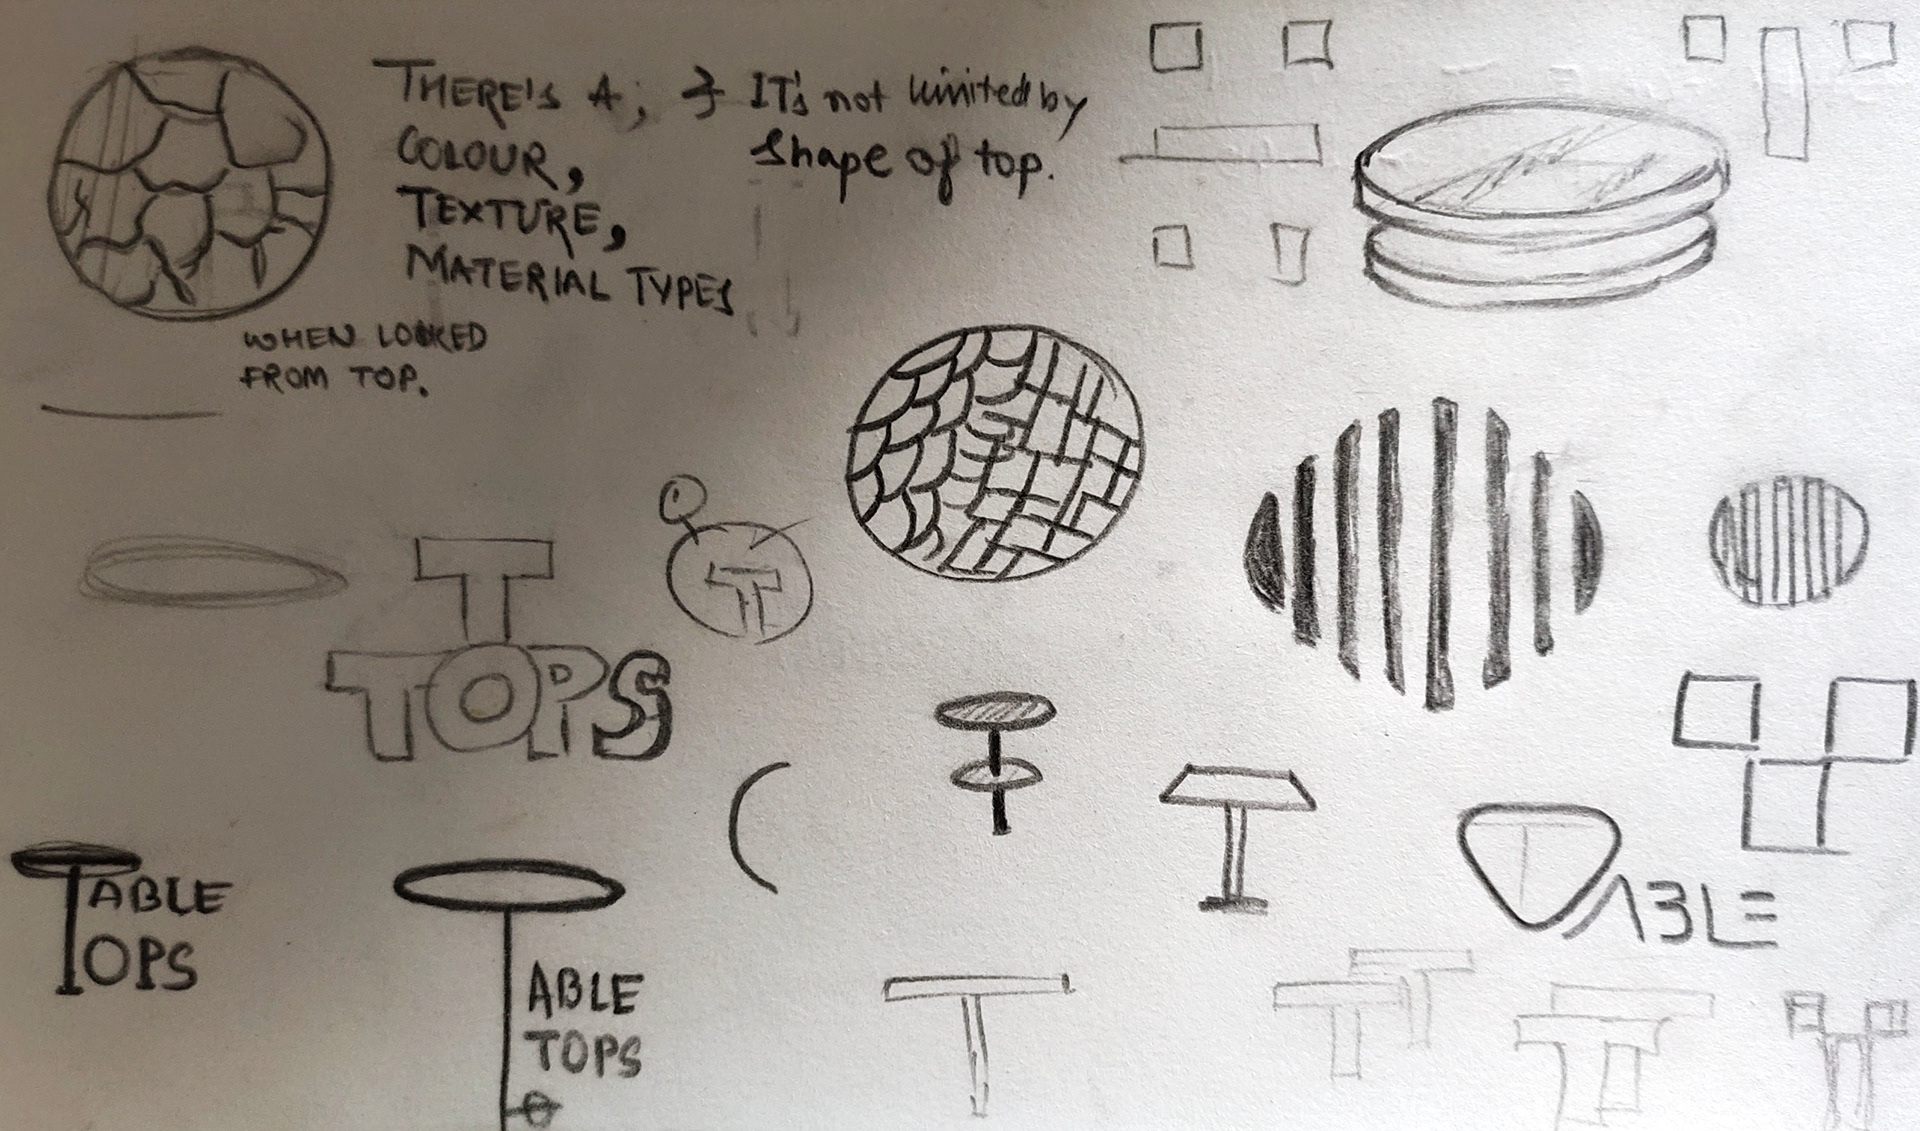 THERE'S A; → IT's not limited by
COLOUR, shape of top.
TEXTURE,
MATERIAL TYPES
WHEN LOOKED
FROM TOP.
T
T
TOPS
TABLE
TOPS
TABLE
TOPS
TABLE